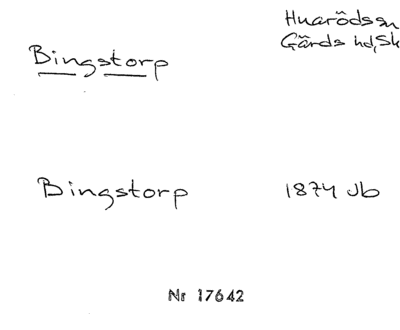 Huarödssn
Gärds hd, Sk
Bingstorp
Bingstorp 1874 Jb
Nr 17642